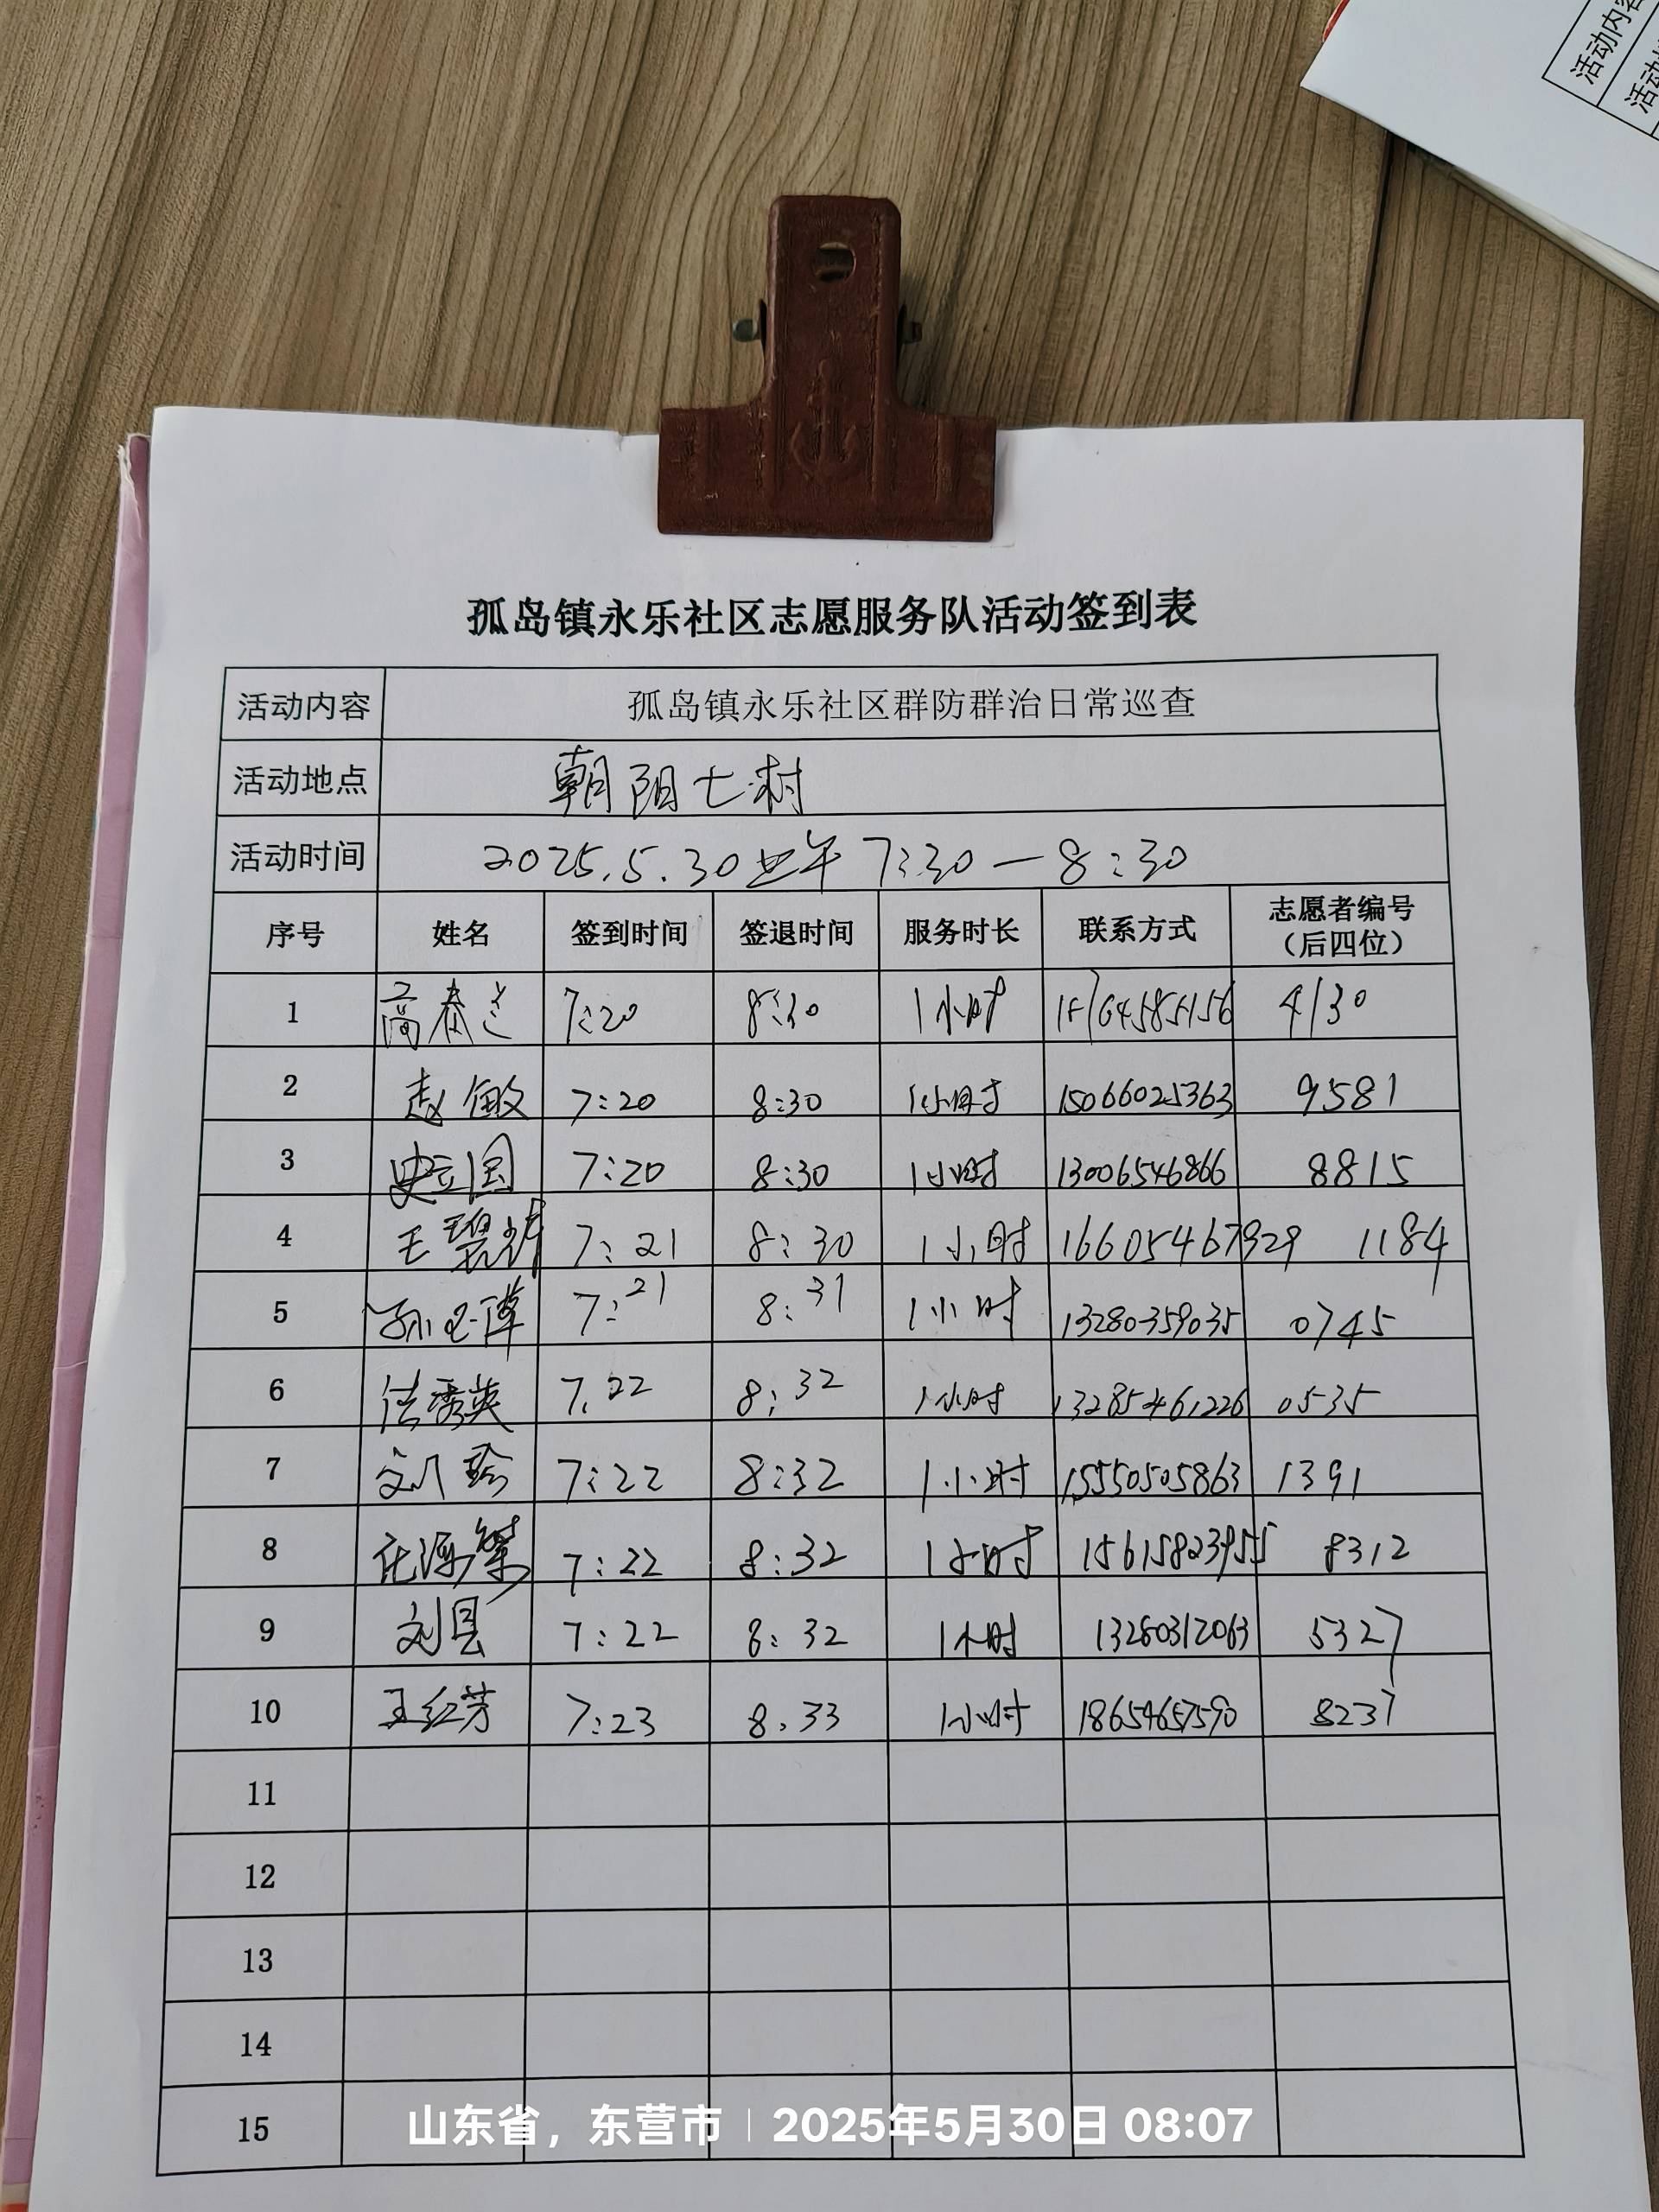 活动内容
活动
孤岛镇永乐社区志愿服务队活动签到表
活动内容 孤岛镇永乐社区群防群治日常巡查
活动地点 朝阳七村
活动时间 2025.5.30上午 7:30—8:30
序号 姓名 签到时间 签退时间 服务时长 联系方式 志愿者编号（后四位）
1 高春兰 7:20 8:30 1小时 4130
2 赵敏 7:20 8:30 1小时 15066025363 9581
3 史立国 7:20 8:30 1小时 13006546866 8815
4 王碧 7:21 8:30 1小时 16605467929 1184
5 孙 7:21 8:31 1小时 13280359035 0745
6 秀英 7:22 8:32 1小时 13285461226 0535
7 刘玲 7:22 8:32 1小时 15550505863 1391
8 7:22 8:32 1小时 15615823955 8312
9 刘县 7:22 8:32 1小时 13280312063 5327
10 王红芳 7:23 8:33 1小时 18654657590 8237
11
12
13
14
15
山东省，东营市 | 2025年5月30日 08:07